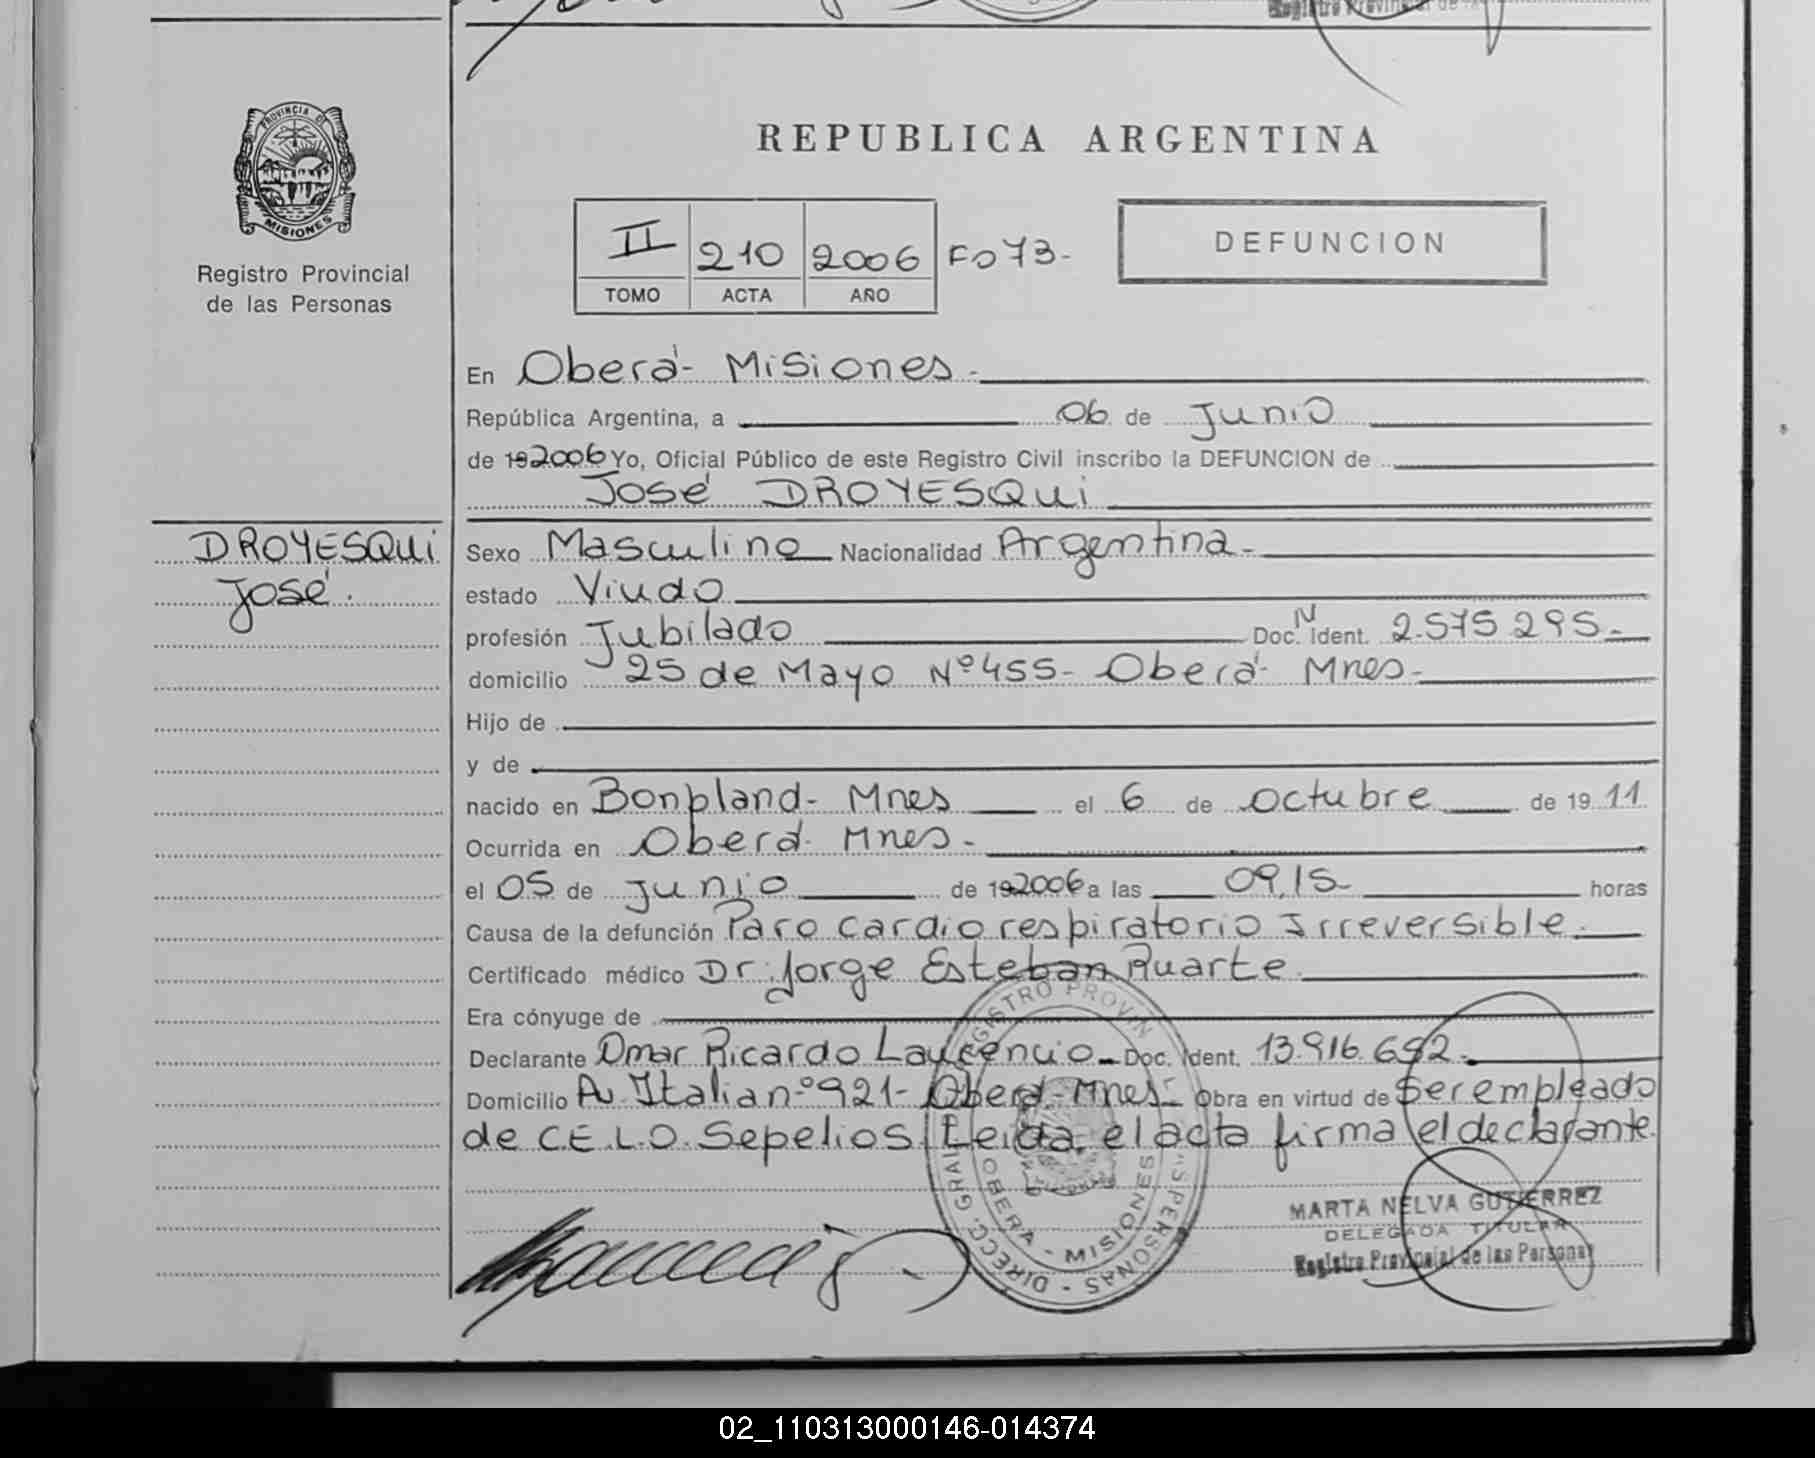 PROVINCIA DE
MISIONES
Registro Provincial
de las Personas
REPUBLICA ARGENTINA
II 210 2006 Fo 73-
TOMO ACTA AÑO
DEFUNCION
En Oberá- Misiones-
República Argentina, a 06 de Junio
de 192006 Yo, Oficial Público de este Registro Civil inscribo la DEFUNCION de
José DROYESQUI
DROYESQUI
José.
Sexo Masculino Nacionalidad Argentina-
estado Viudo
profesión Jubilado Doc. N Ident. 2.575.295-
domicilio 25 de Mayo Nº 455- Oberá- Mnes-
Hijo de
y de
nacido en Bonpland- Mnes el 6 de Octubre de 19 11
Ocurrida en Oberá- Mnes-
el 05 de Junio de 192006 a las 09,15 horas
Causa de la defunción Paro Cardiorespiratorio Irreversible.
Certificado médico Dr. Jorge Esteban Ruarte.
Era cónyuge de
Declarante Omar Ricardo Laurencio- Doc. Ident. 13.916.692-
Domicilio Av. Italia nº 921- Oberá- Mnes- Obra en virtud de Ser empleado
de C.E.L.O. Sepelios. Leida el acta firma el declarante.
DIRECC. GRAL. REGISTRO PROVIN. PERSONAS
OBERA - MISIONES
MARTA NELVA GUTIERREZ
DELEGADA TITULAR
Registro Provincial de las Personas
02_110313000146-014374